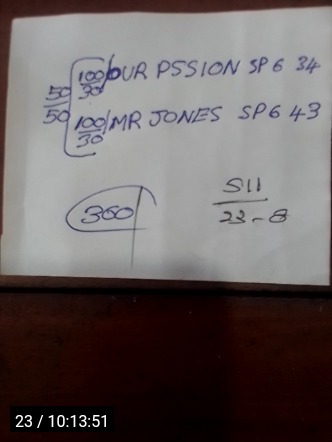 100/30 OUR PSSION SP 6 34
50/50
100/30 MR JONES SP 6 43
360
S11
22-8
23 / 10:13:51